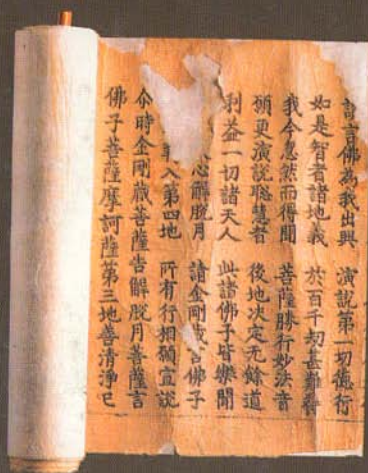 言佛為我出興 演說第一切德行
如是智者諸地義 於百千劫甚難得
我今忽然而得聞 菩薩勝行妙法音
願更演說聡慧者 後地决定无餘道
利益一切諸天人 此諸佛子皆樂聞
心解脫月 請金剛藏言佛子
入第四地 所有行相願宣說
尒時金剛藏菩薩告解脫月菩薩言
佛子菩薩摩訶薩第三地善清淨已